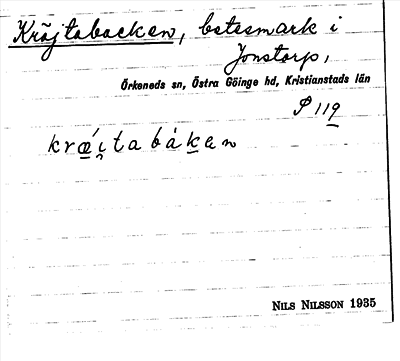 Kröjtabacken, betesmark i
Jonstorp,
Örkeneds sn, Östra Göinge hd, Kristianstads län
P 119
krœ́i̯tabàkan
NILS NILSSON 1935